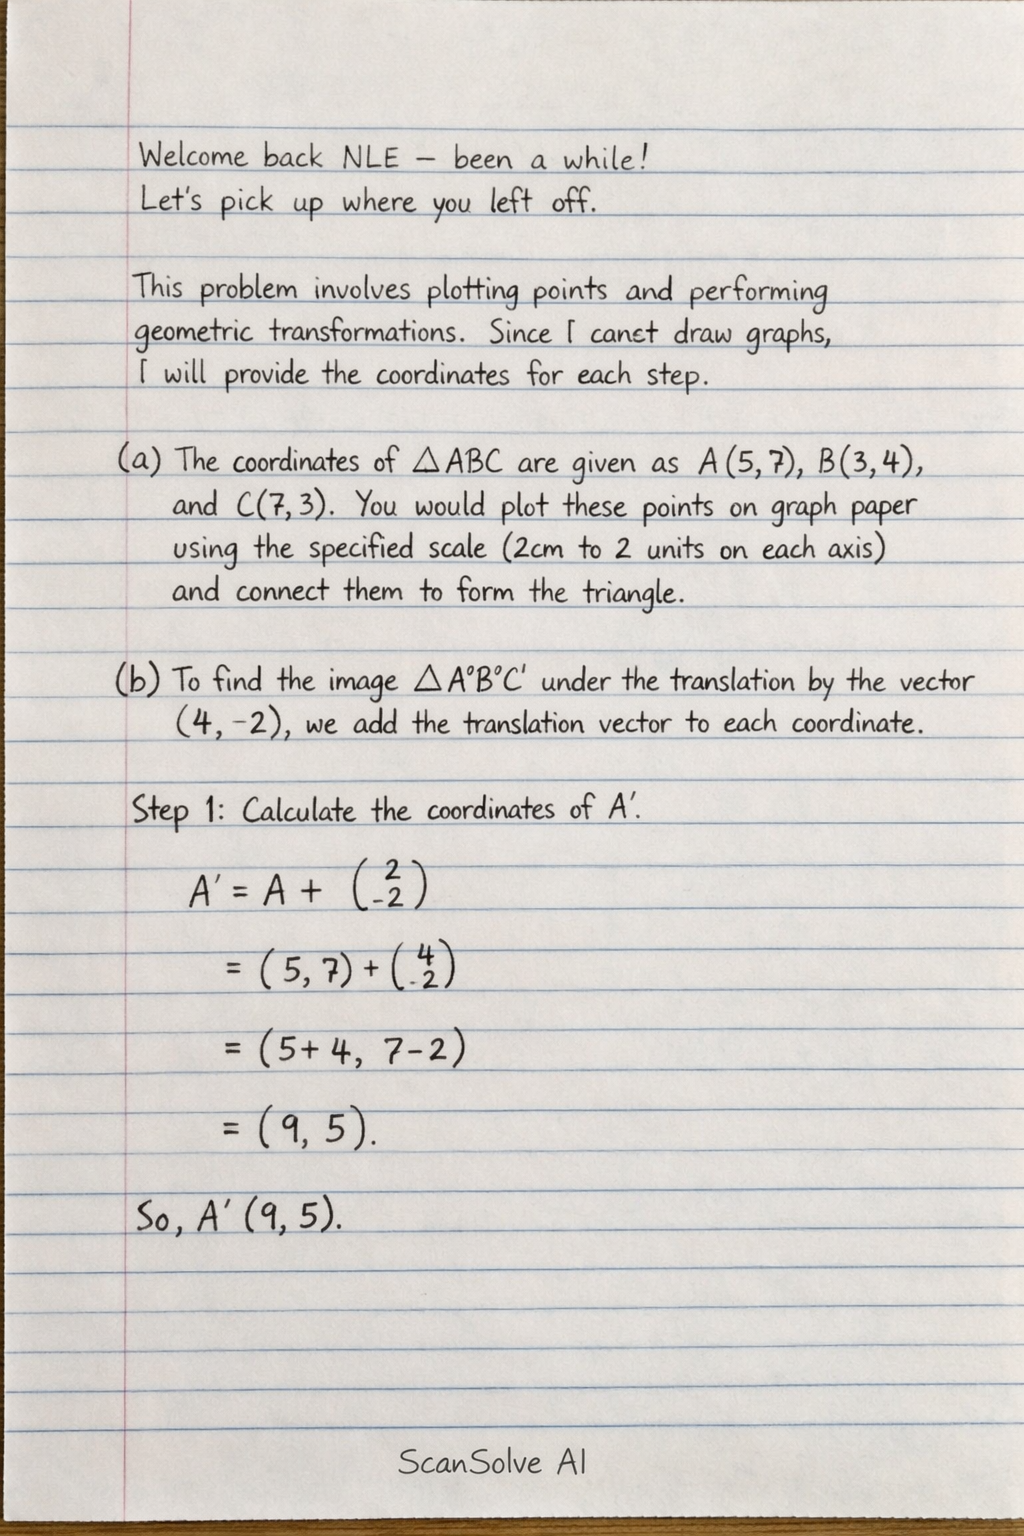 Welcome back NLE – been a while!
Let's pick up where you left off.
This problem involves plotting points and performing
geometric transformations. Since I canst draw graphs,
I will provide the coordinates for each step.
(a) The coordinates of △ABC are given as A(5,7), B(3,4),
and C(7,3). You would plot these points on graph paper
using the specified scale (2cm to 2 units on each axis)
and connect them to form the triangle.
(b) To find the image △A°B°C' under the translation by the vector
(4,-2), we add the translation vector to each coordinate.
Step 1: Calculate the coordinates of A'.
A' = A + (2
-2)
= (5,7) + (4
-2)
= (5+4, 7-2)
= (9, 5).
So, A' (9, 5).
ScanSolve AI